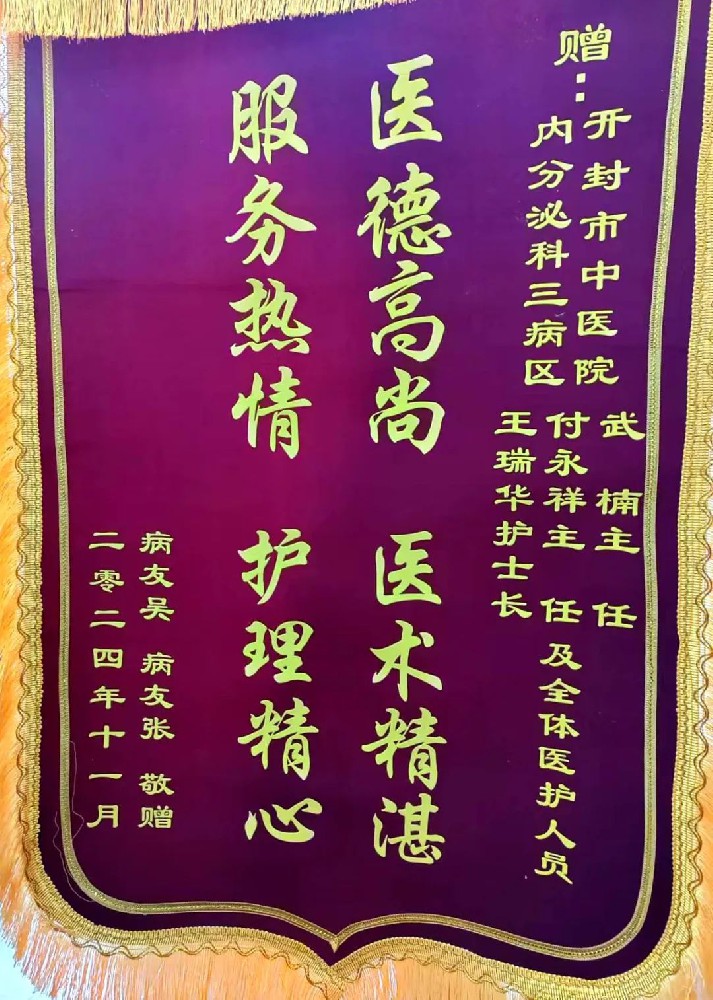 赠：
开封市中医院
内分泌科三病区
武楠主任
付永祥主任
王瑞华护士长
及全体医护人员
医德高尚 医术精湛
服务热情 护理精心
病友吴 病友张 敬赠
二零二四年十一月